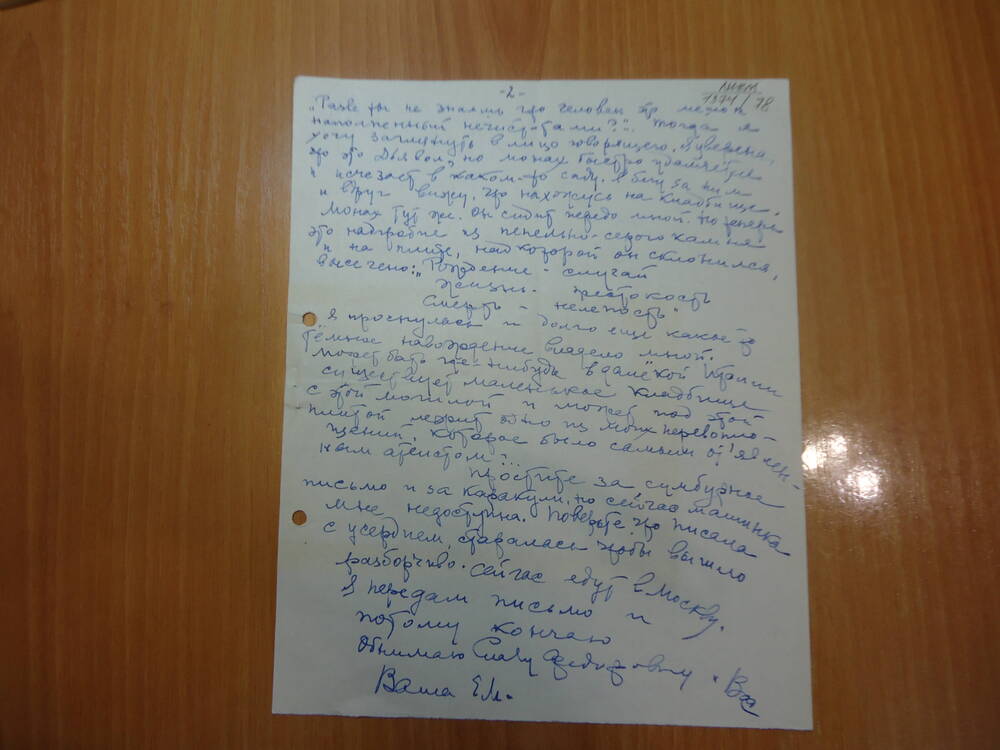 -2-
1374/78
„Разве ты не знаешь что человек это мешок
наполненный нечистотами?". Тогда я
хочу заглянуть в лицо говорящего. Я уверена,
что это Дьявол? но монах быстро удаляется
и исчезает в каком-то саду. Я бегу за ним
и вдруг вижу, что нахожусь на кладбище.
Монах тут же. Он сидит передо мной. Но теперь
это надгробие из пепельно-серого камня
и на плите, над которой он склонился,
высечено: „Рождение - случай
Жизнь - жестокость
Смерть - нелепость"
Я проснулась и долго еще какое то
тёмное наваждение владело мной.
Может быть где-нибудь в далёкой Италии
существует маленькое кладбище
с этой могилой и может под этой
плитой лежит одно из моих перевопло-
щений, которое было самым от'явлен-
ным атеистом?..
Простите за сумбурное
письмо и за каракули, но сейчас машинка
мне недоступна. Поверьте, что писала
с усердием, старалась чтобы вышло
разборчиво. Сейчас едут в Москву.
Я передам письмо и
потому кончаю
Обнимаю Федоровну и Вас
Ваша